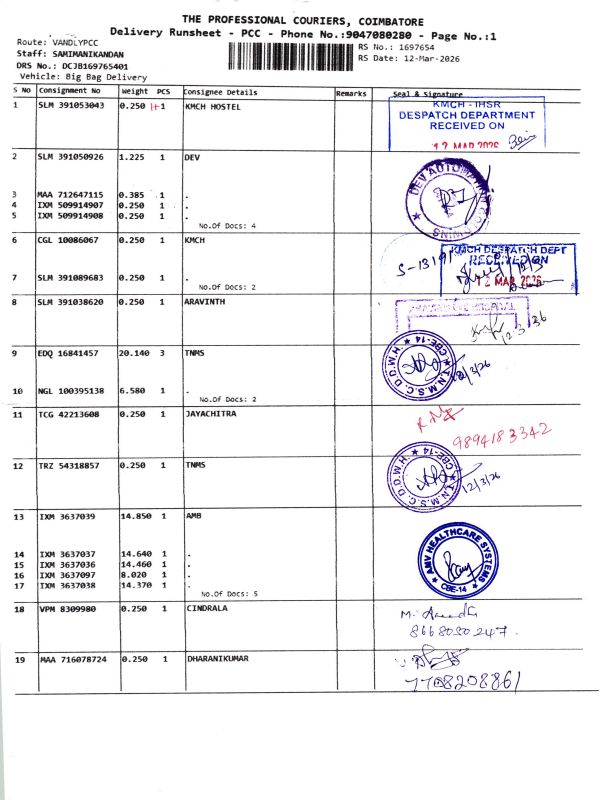 THE PROFESSIONAL COURIERS, COIMBATORE
Delivery Runsheet - PCC - Phone No.:9047080280 - Page No.:1
Route: VANDLYPCC
Staff: SAMIMANIKANDAN
DRS No.: DCJB169765401
Vehicle: Big Bag Delivery
RS No.: 1697654
RS Date: 12-Mar-2026
S No Consignment No Weight PCS Consignee Details Remarks Seal & Signature
1 SLM 391053043 0.250 1+1 KMCH HOSTEL
KMCH - IHSR
DESPATCH DEPARTMENT
RECEIVED ON
12 MAR 2026
2 SLM 391050926 1.225 1 DEV
3 MAA 712647115 0.385 1 .
4 IXM 509914907 0.250 1 .
5 IXM 509914908 0.250 1 .
No.Of Docs: 4
DEV AUTOMATION
6 CGL 10086067 0.250 1 KMCH
7 SLM 391089683 0.250 1 .
No.Of Docs: 2
S-13191
KMCH DESPATCH DEPT
RECEIVED ON
12 MAR 2026
8 SLM 391038620 0.250 1 ARAVINTH
12/3/26
9 EDQ 16841457 20.140 3 TNMS
10 NGL 100395138 6.580 1 .
No.Of Docs: 2
T.N.M.S.C. D.D.W.H. CBE-14
12/3/26
11 TCG 42213608 0.250 1 JAYACHITRA
9894183342
12 TRZ 54318857 0.250 1 TNMS
T.N.M.S.C. D.D.W.H. CBE-14
12/3/26
13 IXM 3637039 14.850 1 AMB
14 IXM 3637037 14.640 1 .
15 IXM 3637036 14.460 1 .
16 IXM 3637097 8.020 1 .
17 IXM 3637038 14.370 1 .
No.Of Docs: 5
AMV HEALTHCARE SYSTEMS
CBE-14
18 VPM 8309980 0.250 1 CINDRALA
8668050247.
19 MAA 716078724 0.250 1 DHARANIKUMAR
7708208861